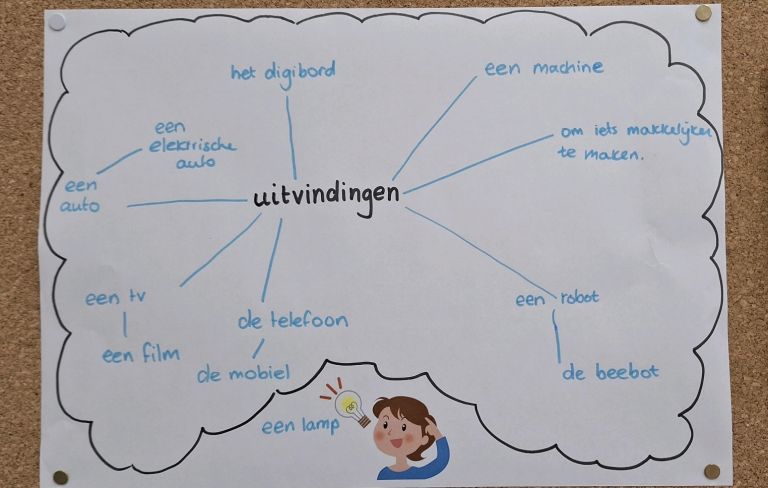 het digibord
een machine
een
elektrische
auto
om iets makkelijker
te maken.
een
auto
uitvindingen
een tv
een film
de telefoon
de mobiel
een robot
de beebot
een lamp